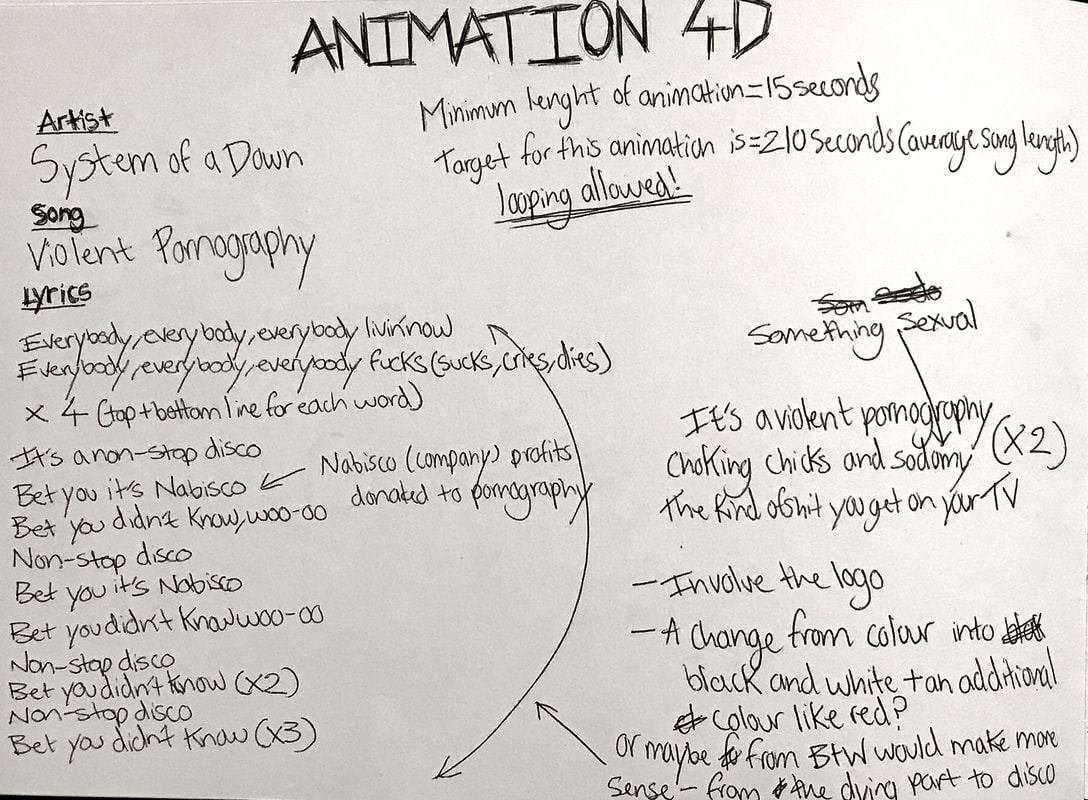 ANIMATION 4D
Artist
System of a Down
Song
Violent Pornography
Lyrics
Everybody, everybody, everybody livin' now
Everybody, everybody, everybody fucks (sucks, cries, dies)
x 4 (top + bottom line for each word)
It's a non-stop disco
Bet you it's Nabisco
Bet you didn't know, woo-oo
Non-stop disco
Bet you it's Nabisco
Bet you didn't know woo-oo
Non-stop disco
Bet you didn't know (x2)
Non-stop disco
Bet you didn't know (x3)
Nabisco (company) profits
donated to pornography
Minimum lenght of animation = 15 seconds
Target for this animation is = 210 seconds (average song length)
looping allowed!
Something sexual
It's a violent pornography
Choking chicks and sodomy (x2)
The kind of shit you get on your TV
- Involve the logo
- A change from colour into
black and white + an additional
colour like red?
Or maybe from B+W would make more
sense - from the dying part to disco